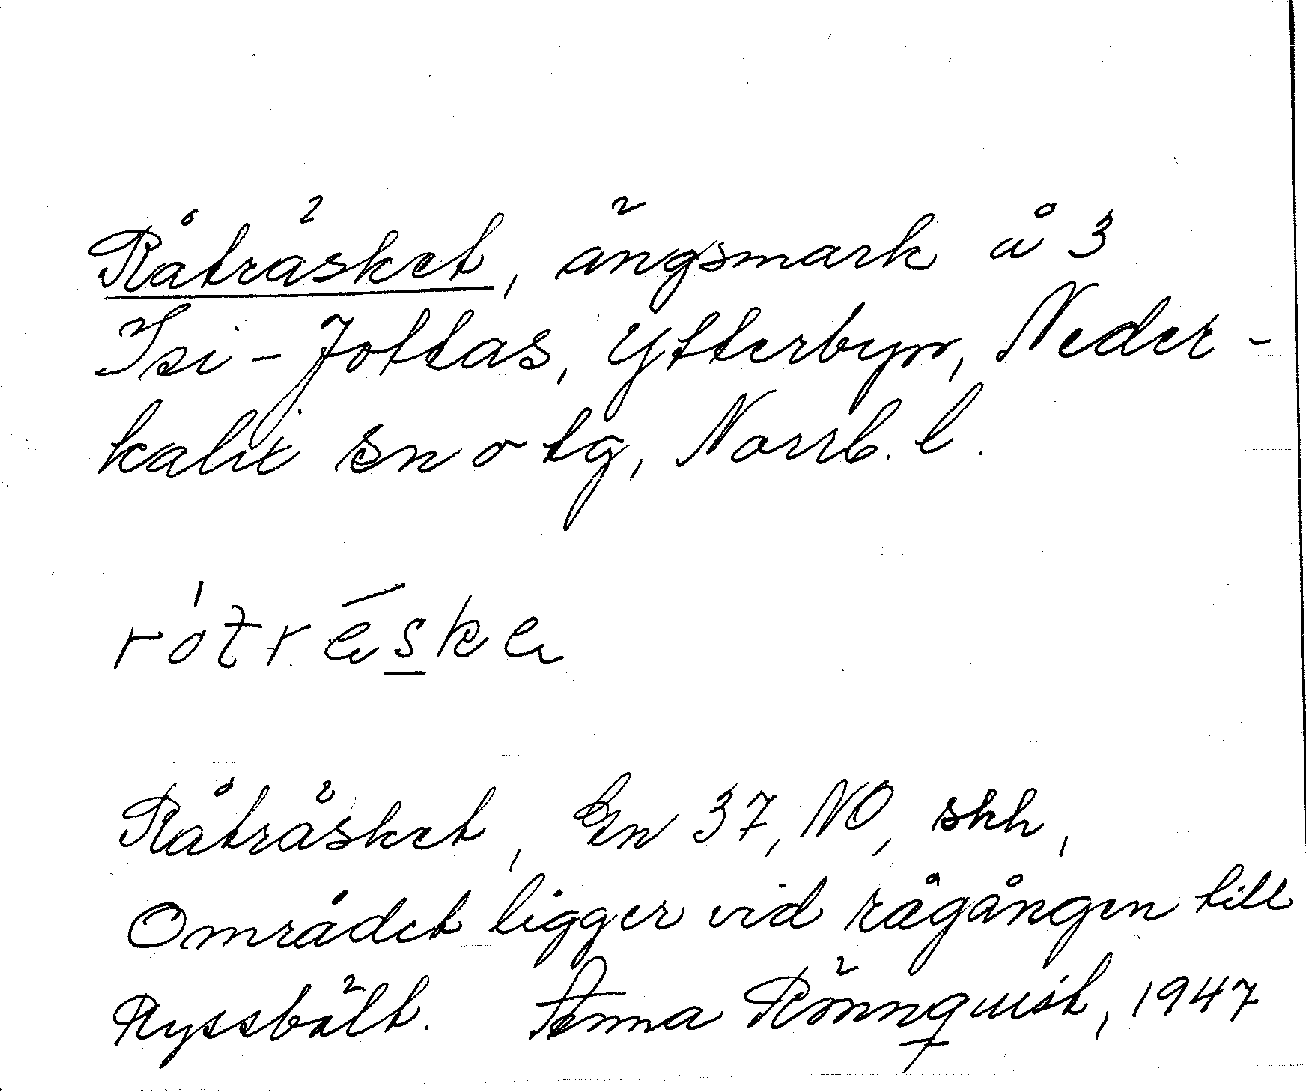 Råträsket, ängsmark å 3
Isi-Jottas, Ytterbyn, Neder-
kalix sn o tg, Norrb. l.
rótrǽske
Råträsket, En 37, NO, skh,
Området ligger vid rågången till
Ryssbält. Anna Rönnquist, 1947